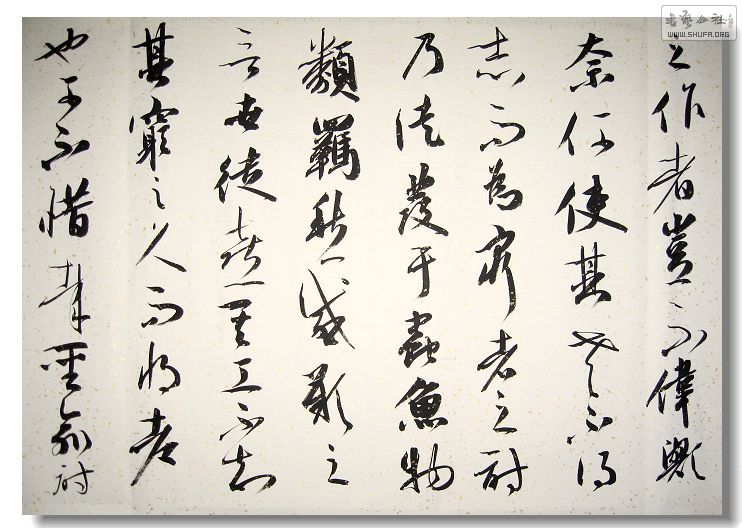 书艺公社
WWW.SHUFA.ORG
之作者豈不偉歟
奈何使其老不得
志而為窮者之詩
乃徒發于蟲魚物
類羈愁感歎之
言世徒喜其工不知
其窮之久而將老
也可不惜哉聖俞詩